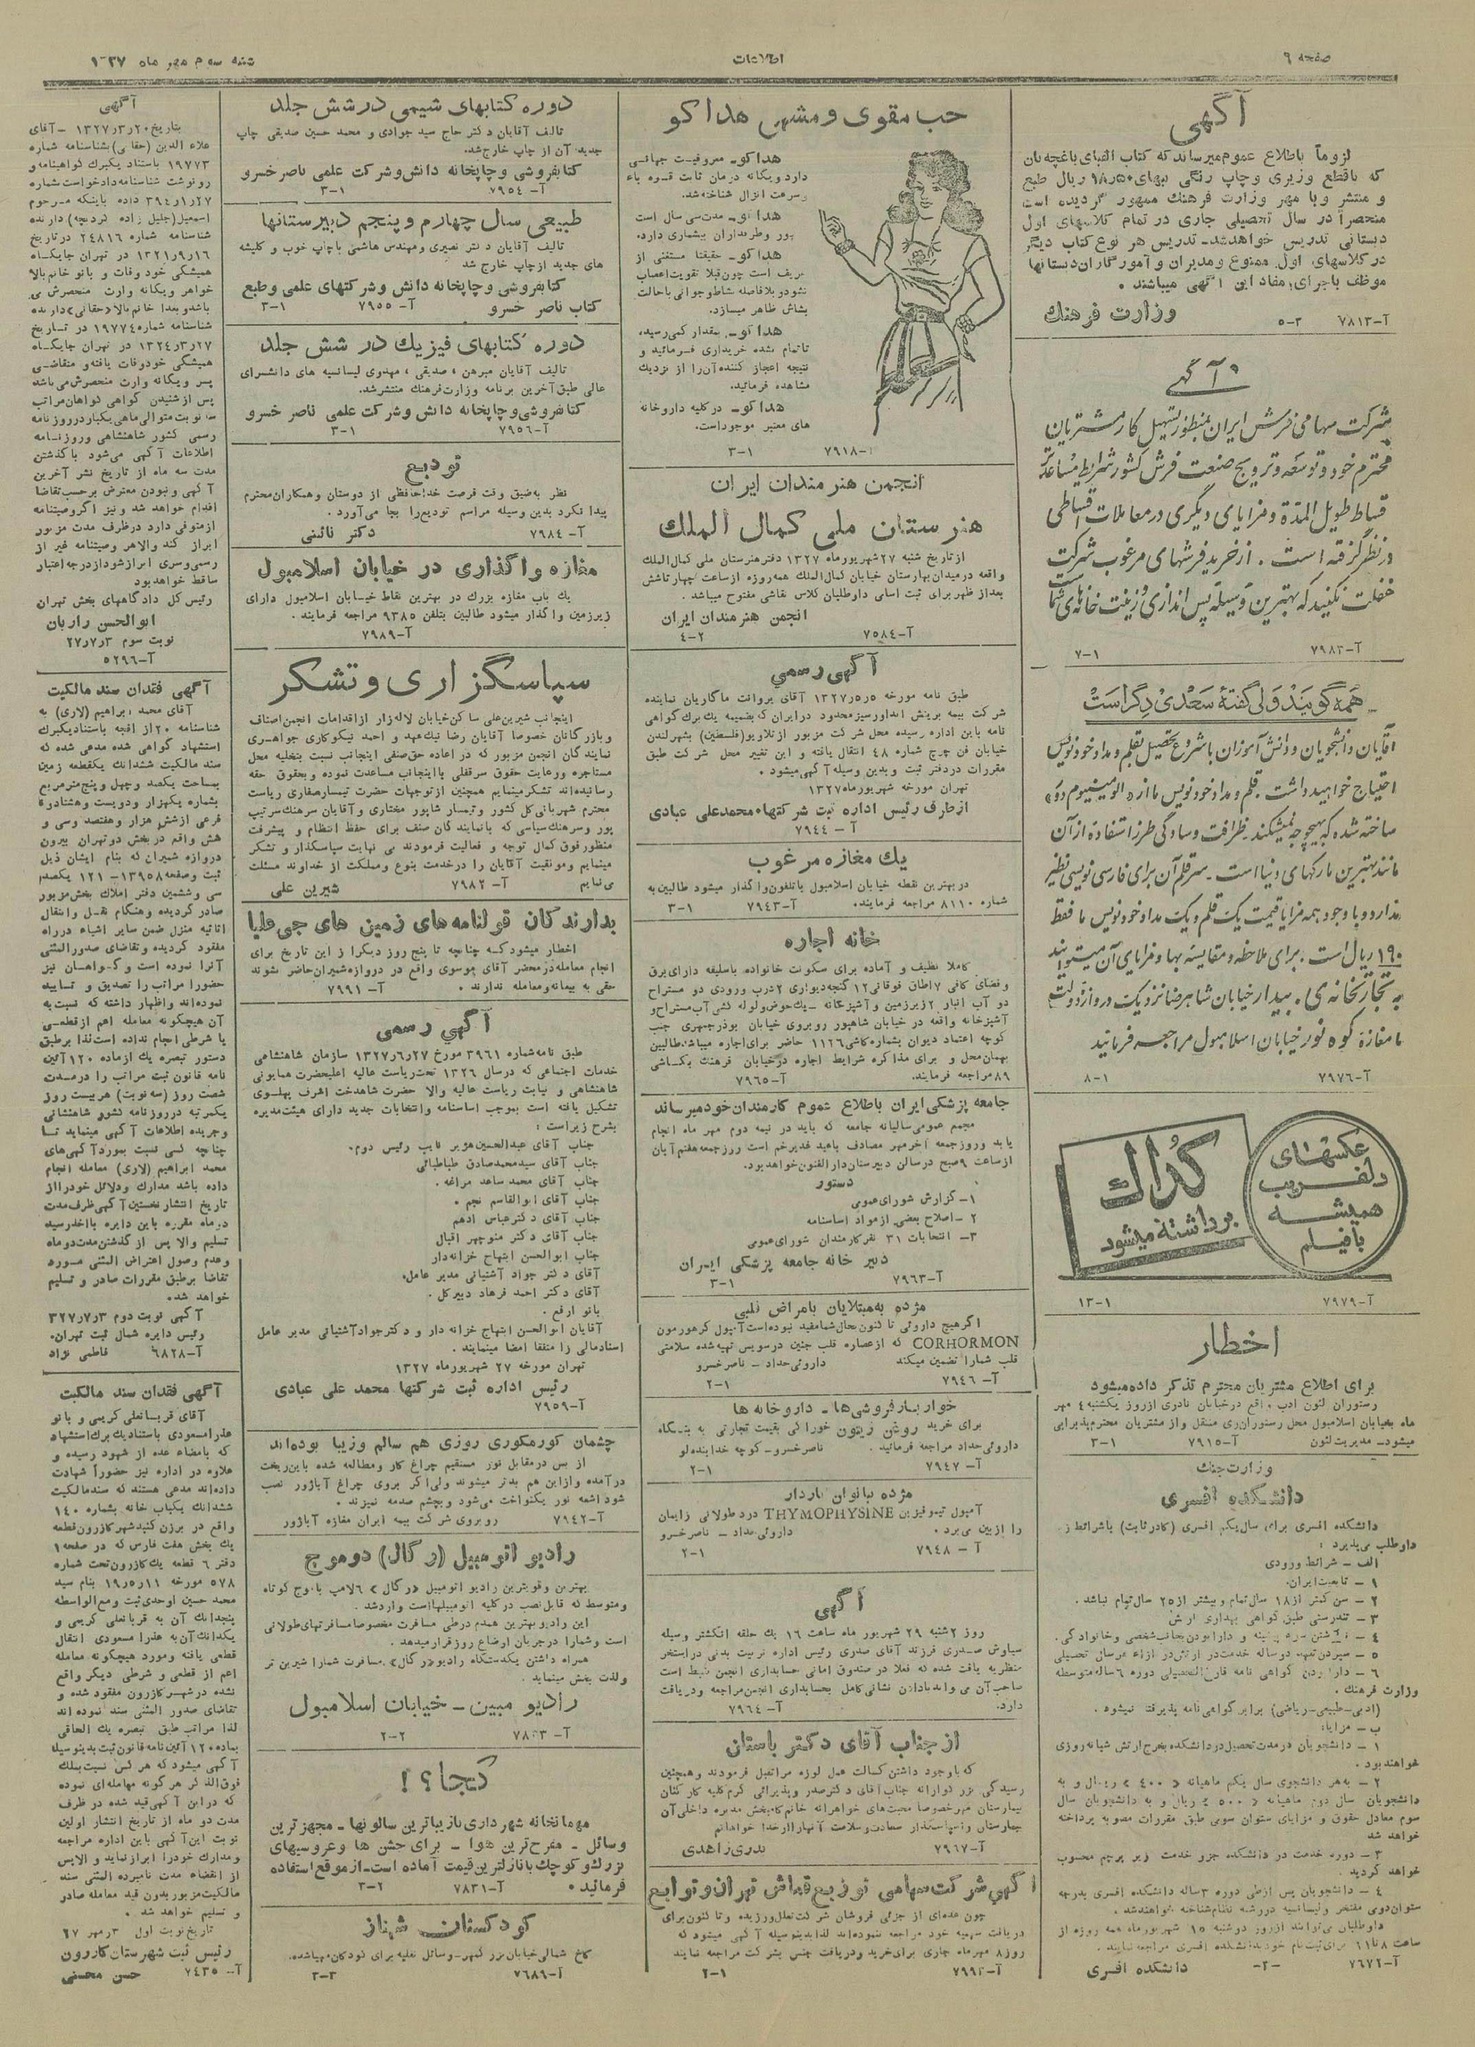 صفحه ۶
اطلاعات
شنبه سوم مهر ماه ۱۳۲۷
آگهی
لزوماً باطلاع عموم میرساند که کتاب الفبای باغچه‌بان
که باقطع وزیری و چاپ رنگی ببهای ۱۸٫۵۰ ریال طبع
و منتشر و با مهر وزارت فرهنگ ممهور گردیده است
منحصراً در سال تحصیلی جاری در تمام کلاسهای اول
دبستانی تدریس خواهد شد ـ تدریس هر نوع کتاب دیگر
در کلاسهای اول ممنوع و مدیران و آموزگاران دبستانها
موظف باجرای مفاد این آگهی میباشند .
وزارت فرهنگ
آ-۷۸۱۳ ۳-۵
آگهی
شرکت سهامی فرش ایران بمنظور تسهیل کار مشتریان
محترم خود و توسعه و ترویج صنعت فرش کشور شرایط مساعدتر
قساط طویل المدة و مزایای دیگری در معاملات اقساطی
در نظر گرفته است . از خرید فرشهای مرغوب شرکت
غفلت نکنید که بهترین وسیله پس اندازی و زینت خانه‌های شما است
آ-۷۹۸۳ ۱-۷
همه گویند ولی گفتهٔ سعدی دگر است
آقایان دانشجویان و دانش آموزان با شروع تحصیل بقلم و مداد خودنویس
احتیاج خواهید داشت . قلم و مداد خودنویس ما از «الومینیوم دور»
ساخته شده که بهیچوجه نمیشکند . ظرافت و سادگی طرز استفاده از آن
مانند بهترین مارکهای دنیا است . سر قلم آن برای فارسی نویسی نظیر
ندارد و با وجود همه مزایا قیمت یک قلم و یک مداد خودنویس ما فقط
۱۹۰ ریال است . برای ملاحظه و مقایسه بها و مزایای آن میتوانید
به تجارتخانه‌ی بیدار خیابان شاهرضا نزدیک دروازه دولت
با مغازه کوه نور خیابان اسلامبول مراجعه فرمائید
آ-۷۹۷۶ ۱-۸
عکسهای
دلفریب
همیشه
با فیلم
کداک
برداشته میشود
آ-۷۹۷۹ ۱-۱۳
اخطار
برای اطلاع مشتریان محترم تذکر داده میشود
رستوران لئون ادب واقع در خیابان نادری از روز یکشنبه ۴ مهر
ماه بخیابان اسلامبول محل رستوران ری منتقل و از مشتریان محترم پذیرایی
میشود ـ مدیریت لئون آ-۷۹۱۵ ۱-۳
وزارت جنگ
دانشکده افسری
دانشکده افسری برای سال یکم افسری (کادر ثابت) با شرائط زیر
داوطلب می‌پذیرد :
الف ـ شرائط ورودی
۱ ـ تابعیت ایران.
۲ ـ سن کمتر از ۱۸ سال تمام و بیشتر از ۲۵ سال تمام نباشد .
۳ ـ تندرستی طبق گواهی بهداری ارتش
۴ ـ نداشتن سوء پیشینه و دارا بودن نجابت شخصی و خانوادگی .
۵ ـ سپردن تعهد دو ساله خدمت در ارتش در ازاء هر سال تحصیلی
۶ ـ دارا بودن گواهی نامه فارغ‌التحصیلی دوره ۶ ساله متوسطه
وزارت فرهنگ .
(ادبی-طبیعی-ریاضی) برابر گواهی نامه پذیرفته نمیشود .
ب ـ مزایا:
۱ ـ دانشجویان در مدت تحصیل در دانشکده بخرج ارتش شبانه روزی
خواهند بود .
۲ ـ به هر دانشجوی سال یکم ماهیانه «۴۰۰» ریال و به
دانشجویان سال دوم ماهیانه «۵۰۰» ریال و به دانشجویان سال
سوم معادل حقوق و مزایای ستوان سومی طبق مقررات مصوبه پرداخته
خواهد شد
۳ ـ دوره خدمت در دانشکده جزو خدمت زیر پرچم محسوب
خواهد گردید .
۴ ـ دانشجویان پس از طی دوره ۳ ساله دانشکده افسری بدرجه
ستوان دومی مفتخر و لیسانسیه در رشته نظام شناخته خواهند شد .
داوطلبان می‌توانند از روز دوشنبه ۱۵ شهریور ماه همه روزه از
ساعت ۸ تا ۱۱ برای ثبت نام خود بدانشکده افسری مراجعه نمایند .
آ-۷۶۷۲ -۲- دانشکده افسری
حب مقوی و مشهی هداکو
هداکو ـ معروفیت جهانی
دارد و یگانه درمان ثابت قوه باء
و سرعت انزال شناخته شد.
هداکو ـ مدت سی سال است
هداکو ـ حقیقتا مستغنی از
تعریف است چون قبلا تقویت اعصاب
نشود و بلافاصله نشاط و جوانی با حالت
بشاش ظاهر میسازد.
هداکو ـ بمقدار کمی رسیده
تا تمام نشده خریداری فرمائید و
نتیجه اعجاز کننده آن را از نزدیک
مشاهده فرمائید.
هداکو ـ در کلیه داروخانه
های معتبر موجود است.
آ-۷۹۱۸ ۱-۳
انجمن هنرمندان ایران
هنرستان ملی کمال الملک
از تاریخ شنبه ۲۷ شهریور ماه ۱۳۲۷ دفتر هنرستان ملی کمال الملک
واقعه در میدان بهارستان خیابان کمال الملک همه روزه از ساعت چهار تا شش
بعد از ظهر برای ثبت اسامی داوطلبان کلاس نقاشی مفتوح میباشد .
انجمن هنرمندان ایران
آ-۷۵۸۴ ۲-۴
آگهی رسمی
طبق نامه مورخه ۵٫۵٫۱۳۲۷ آقای بروانت ماگاریان نماینده
شرکت بیمه بریتش انداورسیز محدود در ایران که بضمیمه یک برگ گواهی
نامه باین اداره رسیده محل شرکت مزبور از تلاویو (فلسطین) بشهر لندن
خیابان فن چرچ شماره ۴۸ انتقال یافته و این تغییر محل شرکت طبق
مقررات در دفتر ثبت و بدین وسیله آگهی میشود .
تهران مورخه شهریور ماه ۱۳۲۷
از طرف رئیس اداره ثبت شرکتها ـ محمدعلی عبادی
آ ـ ۷۹۴۴
یک مغازه مرغوب
در بهترین نقطه خیابان اسلامبول با تلفون واگذار میشود طالبین به
شماره ۸۱۱۰ مراجعه فرمایند. آ-۷۹۴۳ ۱-۳
خانه اجاره
کاملا نظیف و آماده برای سکونت خانواده با سلیقه دارای برق
و فضای کافی ۷ اطاق فوقانی ۱۲ گنجه دیواری ۲ درب ورودی دو مستراح
دو آب انبار ۲ زیرزمین و آشپزخانه ـ یک حوض و لوله کشی آب مستراح و
آشپزخانه واقعه در خیابان شاهپور روبروی خیابان بوذرجمهری جنب
کوچه اعتماد دیوان بشماره کاشی ۱۱۲۶ حاضر برای اجاره میباشد ـ طالبین
بهمان محل و برای مذاکره شرایط اجاره در خیابان فرهنگ بکاشی
۸۹ مراجعه فرمایند. آ-۷۹۶۵
جامعه پزشکی ایران باطلاع عموم کارمندان خود میرساند
مجمع عمومی سالیانه جامعه که باید در نیمه دوم مهر ماه انجام
یابد و روز جمعه آخر مهر مصادف با عید غدیر خم است روز جمعه هفتم آبان
از ساعت ۹ صبح در سالن دبیرستان دارالفنون خواهد بود.
دستور
۱ـ گزارش شورای عمومی
۲ ـ اصلاح بعضی از مواد اساسنامه
۳ـ انتخابات ۳۱ نفر کارمندان شورای عمومی
دبیر خانه جامعه پزشکی ایران
آ-۷۹۶۳ ۱-۳
مژده به مبتلایان بامراض قلبی
اگر هیچ داروئی تا کنون بحال شما مفید نبوده است آمپول کرهورمون
CORHORMON که از عصاره قلب جنین در سویس تهیه شده سلامتی
قلب شما را تضمین میکند داروئی حداد ـ ناصرخسرو
آ-۷۹۴۶ ۱-۲
خواربارفروشی‌ها ـ داروخانه ها
برای خرید روغن زیتون خوراکی بقیمت تجارتی به بنگاه
داروئی حداد مراجعه فرمائید . ناصرخسرو ـ کوچه خدابنده‌لو
آ-۷۹۴۷ ۱-۲
مژده ببانوان باردار
آمپول تیموفیزین THYMOPHYSINE درد طولانی زایمان
را از بین می‌برد . داروئی حداد ـ ناصرخسرو
آ ـ ۷۹۴۸ ۱-۲
آگهی
روز ۲ شنبه ۲۹ شهریور ماه ساعت ۱۶ یک حلقه انگشتر وسیله
سیاوش صدری فرزند آقای صدری رئیس اداره تربیت بدنی در استخر
منظریه یافت شده که فعلا در صندوق امانی حسابداری انجمن ضبط است
صاحب آن می‌تواند با دادن نشانی کامل بحسابداری انجمن مراجعه و دریافت
دارد. آ-۷۹۶۴
از جناب آقای دکتر باستان
که با وجود داشتن کسالت عمل لوزه مرا تقبل فرمودند و همچنین
بیمارستان مهر خصوصا محبت‌های خواهرانه خانم کام‌بخش مدیره داخلی آن
بیمارستان واسپاسگذار سعادت و سلامت آنها را از خدا خواهانم
آ-۷۹۶۷ بدری زاهدی
آگهی شرکت سهامی توزیع قماش تهران و توابع
چون عده‌ای از جزئی فروشان شرکت تعلل ورزیده و تا کنون برای
دریافت سهمیه خود مراجعه ننموده‌اند لذا بدینوسیله آگهی میشود که
روز ۸ مهر ماه جاری برای خرید و دریافت جنس بشرکت مراجعه نمایند
۱-۲
دوره کتابهای شیمی در شش جلد
تالیف آقایان دکتر حاج سید جوادی و محمد حسین صدیقی چاپ
جدید آن از چاپ خارج شد.
کتابفروشی و چاپخانه دانش و شرکت علمی ناصر خسرو
آ-۷۹۵۴ ۱-۳
طبیعی سال چهارم و پنجم دبیرستانها
تالیف آقایان دکتر نصیری و مهندس هاشمی با چاپ خوب و کلیشه
های جدید از چاپ خارج شد
کتابفروشی و چاپخانه دانش و شرکتهای علمی و طبع
کتاب ناصر خسرو آ-۷۹۵۵ ۱-۳
دوره کتابهای فیزیک در شش جلد
تالیف آقایان مبرهن ، صدیقی ، مهدوی لیسانسیه های دانشسرای
عالی طبق آخرین برنامه وزارت فرهنگ منتشر شد.
کتابفروشی و چاپخانه دانش و شرکت علمی ناصر خسرو
آ-۷۹۵۶ ۱-۳
تودیع
نظر به ضیق وقت فرصت خداحافظی از دوستان و همکاران محترم
پیدا نکرد بدین وسیله مراسم تودیع را بجا می‌آورد .
آ-۷۹۸۴ دکتر نائینی
مغازه واگذاری در خیابان اسلامبول
یک باب مغازه بزرگ در بهترین نقاط خیابان اسلامبول دارای
زیرزمین واگذار میشود طالبین بتلفن ۹۳۸۵ مراجعه فرمایند .
آ-۷۹۸۹
سپاسگزاری و تشکر
اینجانب شیرین علی ساکن خیابان لاله زار از اقدامات انجمن اصناف
و بازرگانان خصوصا آقایان رضا نیک عهد و احمد نیکوکاری جواهری
نمایندگان انجمن مزبور که در اعاده حق صنفی اینجانب نسبت بتخلیه محل
مستاجره و رعایت حقوق سرقفلی با اینجانب مساعدت نموده و بحقوق حقه
رسانیده‌اند تشکر مینمایم همچنین از توجهات حضرت تیمسار صفاری ریاست
محترم شهربانی کل کشور و تیمسار شاپور مختاری و آقایان سرهنگ سرتیپ
پور و سرهنگ سیاسی که با نمایندگان صنف برای حفظ انتظام و پیشرفت
منظور فوق کمال توجه و فعالیت فرمودند بی نهایت سپاسگذار و تشکر
مینمایم و موفقیت آقایان را در خدمت بنوع و مملکت از خداوند مسئلت
می‌نمایم آ-۷۹۸۲ شیرین علی
بدارندگان قولنامه‌های زمین های جی فلیا
اخطار میشود که چنانچه تا پنج روز دیگر از این تاریخ برای
انجام معامله در محضر آقای موسوی واقع در دروازه شمیران حاضر نشوند
حقی به بیعانه و معامله ندارند . آ-۷۹۹۱
آگهی رسمی
طبق نامه شماره ۳۹۶۱ مورخ ۲۷٫۶٫۱۳۲۷ سازمان شاهنشاهی
خدمات اجتماعی که در سال ۱۳۲۶ تحت ریاست عالیه اعلیحضرت همایونی
شاهنشاهی و نیابت ریاست عالیه والا حضرت شاهدخت اشرف پهلوی
تشکیل یافته است بموجب اساسنامه و انتخابات جدید دارای هیئت مدیره
بشرح زیر است :
جناب آقای عبدالحسین هژبر نایب رئیس دوم.
جناب آقای سیدمحمدصادق طباطبائی
جناب آقای محمد ساعد مراغه .
جناب آقای ابوالقاسم نجم .
جناب آقای دکتر عباس ادهم
جناب آقای دکتر منوچهر اقبال
جناب ابوالحسن ابتهاج خزانه‌دار
آقای دکتر جواد آشتیانی مدیر عامل.
آقای دکتر احمد فرهاد دبیر کل .
بانو ارفع .
آقایان ابوالحسن ابتهاج خزانه دار و دکتر جواد آشتیانی مدیر عامل
اسناد مالی را متفقا امضا مینمایند .
تهران مورخه ۲۷ شهریور ماه ۱۳۲۷
رئیس اداره ثبت شرکتها محمد علی عبادی
آ-۷۹۵۹
چشمان کورمکوری روزی هم سالم و زیبا بوده‌اند
از بس در مقابل نور مستقیم چراغ کار و مطالعه شده باین ریخت
در آمده و از این هم بدتر میشوند ولی اگر بروی چراغ آباژور نصب
شود اشعه نور یکنواخت می‌شود و بچشم صدمه نمیزند .
آ-۷۹۴۲ روبروی شرکت بیمه ایران مغازه آباژور
رادیو اتومبیل (رگال) دو موج
بهترین و قویترین رادیو اتومبیل «رگال» ۶ لامپ با موج کوتاه
و متوسط که قابل نصب در کلیه اتومبیلهاست وارد شد .
این رادیو بهترین همدم در طی مسافرت مخصوصا مسافرتهای طولانی
است و شما را در جریان اوضاع روز قرار میدهد .
همراه داشتن یکدستگاه رادیو «رگال» مسافرت شما را شیرین تر
و لذت بخش مینماید
رادیو مبین ـ خیابان اسلامبول
آ-۷۸۶۳ ۲-۲
کجا؟!
مهمانخانه شهرداری با زیباترین سالونها ـ مجهزترین
وسائل ـ مفرح‌ترین هوا ـ برای جشن ها و عروسیهای
بزرگ و کوچک با نازلترین قیمت آماده است ـ از موقع استفاده
فرمائید . آ-۷۸۳۱ ۲-۳
کودکستان شهناز
کاخ شمالی خیابان بزرگمهر ـ وسائل نقلیه برای کودکان مهیا شده.
آ-۷۶۸۹ ۳-۳
آگهی
بتاریخ ۲۰٫۳٫۱۳۲۷ ـ آقای
علاء الدین (حقانی) بشناسنامه شماره
۱۹۷۷۳ باستناد یکبرگ گواهینامه و
رونوشت شناسنامه دادخواست شماره
۲۷٫۱٫۳۹۴ داده باینکه مرحوم
اسمعیل (جلیل زاده کردبچه) دارنده
شناسنامه شماره ۲۴۸۱۶ در تاریخ
۱۶٫۹٫۱۳۲۱ در تهران جایگاه
همیشگی خود وفات و بانو خانم بالا
خواهر و یگانه وارث منحصرش می
باشد و بعدا خانم بالا (حقانی) دارنده
شناسنامه شماره ۱۹۷۷۴ در تاریخ
۲۷٫۳٫۱۳۲۴ در تهران جایگاه
همیشگی خود وفات یافته و متقاضی
پسر و یگانه وارث منحصرش می‌باشد
پس از شنیدن گواهی گواهان مراتب
سه نوبت متوالی ماهی یکبار در روزنامه
رسمی کشور شاهنشاهی و روزنامه
اطلاعات آگهی می‌شود با گذشتن
مدت سه ماه از تاریخ نشر آخرین
آگهی و نبودن معترض بر حسب تقاضا
اقدام خواهد شد و نیز اگر وصیتنامه
از متوفی دارد در ظرف مدت مزبور
ابراز کند والا هر وصیتنامه غیر از
رسمی و سری ابراز شود از درجه اعتبار
ساقط خواهد بود
رئیس کل دادگاههای بخش تهران
ابوالحسن راربان
نوبت سوم ۳٫۷٫۲۷
آ-۵۲۹۶
آگهی فقدان سند مالکیت
آقای محمد ابراهیم (لاری) به
شناسنامه ۲۰ از افجه باستناد یکبرگ
استشهاد گواهی شده مدعی شده که
سند مالکیت ششدانگ یکقطعه زمین
بمساحت یکصد و چهل و پنج متر مربع
بشماره یکهزار و دویست و هشتاد و
فرعی از شش هزار و هفتصد و سی و
شش واقع در بخش دو تهران بیرون
دروازه شمیران که بنام ایشان ذیل
ثبت و صفحه ۱۳۹۵۸-۱۲۱ یکصد
سی و ششمین دفتر املاک بخش مزبور
صادر گردیده و هنگام نقل و انتقال
اثاثیه منزل ضمن سایر اشیاء در راه
مفقود گردیده و تقاضای صدور المثنی
آنرا نموده است و گواهان نیز
حضورا مراتب را تصدیق و تایید
نموده‌اند و اظهار داشته که نسبت به
آن هیچگونه معامله اعم از قطعی
یا شرطی انجام نداده است لذا بر طبق
دستور تبصره یک از ماده ۱۲۰ آئین
نامه قانون ثبت مراتب را در مدت
شصت روز (سه نوبت) هر بیست روز
یکمرتبه در روزنامه کشور شاهنشاهی
و جریده اطلاعات آگهی مینماید تا
چنانچه کسی نسبت بمورد آگهی‌های
محمد ابراهیم (لاری) معامله انجام
داده باشد مدارک و دلائل خود را از
تاریخ انتشار نخستین آگهی ظرف مدت
دو ماه مقرره باین دایره با اخذ رسید
تسلیم والا پس از گذشتن مدت دو ماه
و عدم وصول اعتراض المثنی مورد
تقاضا بر طبق مقررات صادر و تسلیم
خواهد شد.
آگهی نوبت دوم ۳٫۷٫۳۲۷
رئیس دایره شمال ثبت تهران.
آ-۶۸۲۸ فاطمی نژاد
آگهی فقدان سند مالکیت
آقای قربانعلی کریمی و بانو
عذرا مسعودی باستناد یک برگ استشهاد
که بامضاء عده از شهود رسیده و
علاوه در اداره نیز حضوراً شهادت
داده‌اند مدعی هستند که سند مالکیت
ششدانگ یکباب خانه بشماره ۱۴۰
واقع در برزن گنبد شهر کازرون قطعه
یک بخش هفت فارس که در صفحه ۱
دفتر ۶ قطعه یک کازرون تحت شماره
۵۷۸ مورخه ۱۱٫۵٫۱۹ بنام سید
محمد حسین اوحدی ثبت و مع الواسطه
پنجدانگ آن به قربانعلی کریمی و
یکدانگ آن به عذرا مسعودی انتقال
قطعی یافته و مورد هیچگونه معامله
اعم از قطعی و شرطی دیگر واقع
نشده در شهر کازرون مفقود شده و
تقاضای صدور المثنی سند نموده اند
لذا مراتب طبق تبصره یک الحاقی
بماده ۱۲۰ آئین نامه قانون ثبت بدینوسیله
آگهی میشود که هر کس نسبت بملک
فوق الذکر هر گونه معامله‌ای نموده
که در این آگهی قید شده در ظرف
مدت دو ماه از تاریخ انتشار اولین
نوبت این آگهی باین اداره مراجعه
و مدارک خود را ابراز نماید و الا پس
از انقضاء مدت نامبرده المثنی سند
مالکیت مزبور بدون قید معامله صادر
و تسلیم خواهد شد .
تاریخ نوبت اول ۳ مهر ۲۷
رئیس ثبت شهرستان کازرون
آ-۷۴۳۵ حسن محسنی